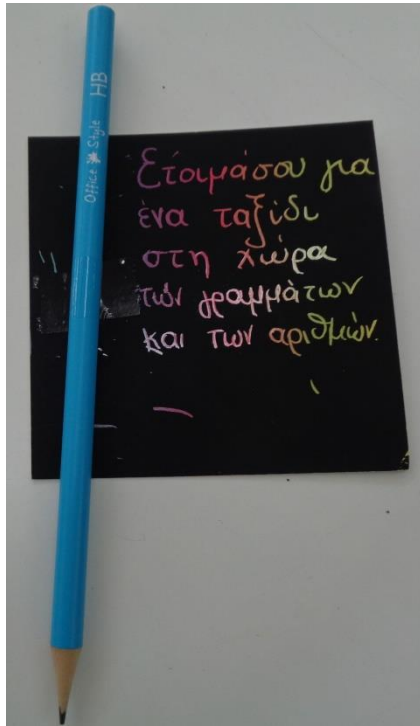 Office Style HB
Ετοιμάσου για
ένα ταξίδι
στη χώρα
των γραμμάτων
και των αριθμών.